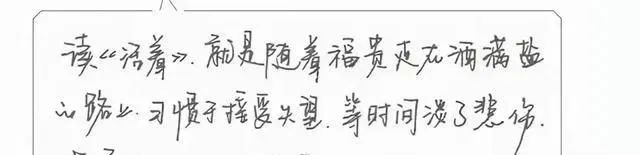 读《活着》.就是随着福贵走在洒满盐
的路上.习惯于接受失望.等时间淡了悲伤.